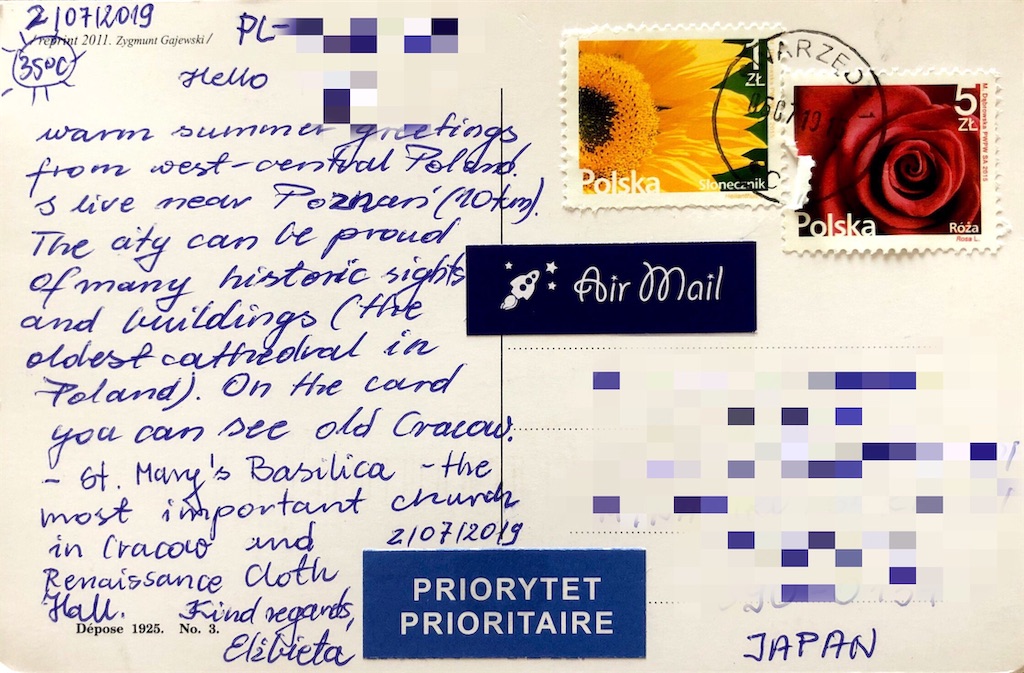 2/07/2019
/reprint 2011. Zygmunt Gajewski/
35°C
PL-
Hello
warm summer greetings
from west-central Poland.
I live near Poznań (10 km).
The city can be proud
of many historic sights
and buildings (the
oldest cathedral in
Poland). On the card
you can see old Cracow.
- St. Mary's Basilica - the
most important church
in Cracow and
Renaissance Cloth
Hall. Kind regards,
Elżbieta
2/07/2019
Dépose 1925. No. 3.
1 ZŁ
Polska
Słonecznik
5 ZŁ
M. Dąbrowska PWPW SA 2015
Polska
Róża
Rosa L.
Air Mail
PRIORYTET
PRIORITAIRE
JAPAN